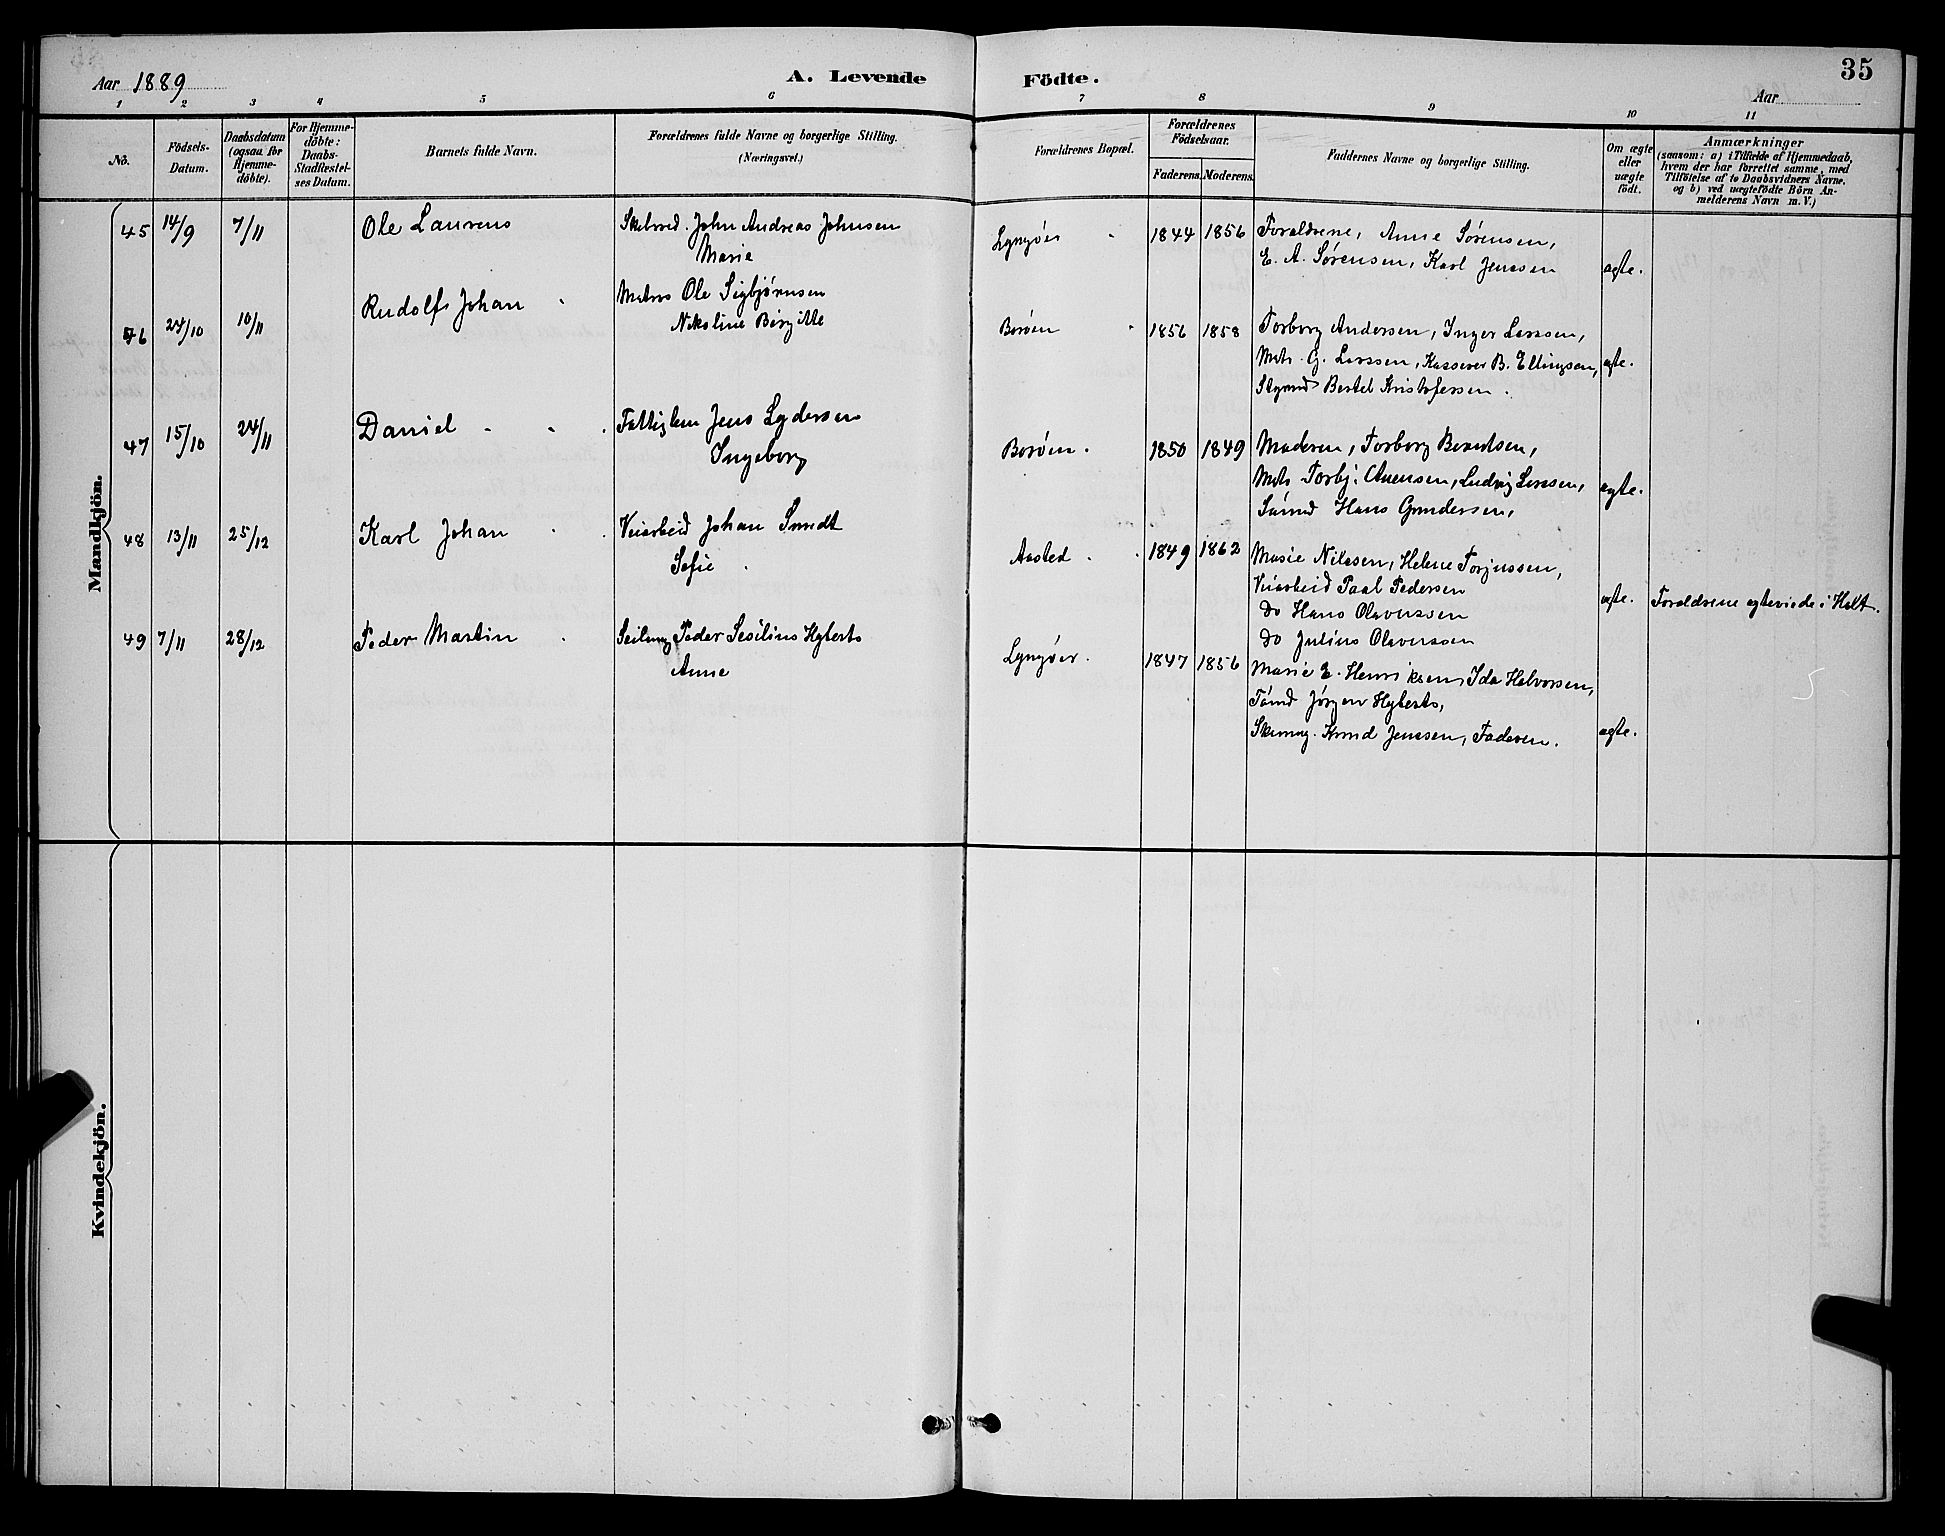 Aar 1889
A. Levende
Födte.
35
Aar
1 2 3 4 5 6 7 8 9 10 11
No.
Födsels-Datum.
Daabsdatum (ogsaa for Hjemme-döbte).
For Hjemme-döbte: Daabs-Stadfæstel-ses Datum.
Barnets fulde Navn.
Forældrenes fulde Navne og borgerlige Stilling.
(Næringsvei.)
Forældrenes Bopæl.
Forældrenes Födselsaar.
Faderens. Moderens.
Faddernes Navne og borgerlige Stilling.
Om ægte eller uægte födt.
Anmærkninger
(saasom: a) i Tilfælde af Hjemmedaab,
hvem der har forrettet samme, med
Tilföielse af to Daabsvidners Navne,
og b) ved uægtefödte Börn An-
melderens Navn m. V.)
Mandkjön.
45 14/9 7/11 Ole Laurens Skibsred. John Andreas Johnsen
Marie
Lyngøer 1844 1856 Forældrene, Anne Sørensen,
E. A. Sørensen, Karl Jenssen ægte.
46 24/10 10/11 Rudolf Johan Matros Ole Sigbjørnsen
Nikoline Birgitte
Borøen 1856 1858 Torborg Andersen, Inger Larssen,
Matr. G. Larssen, Kasserer B. Ellingsen, ægte.
Styrmd Bertel Kristofersen.
47 15/10 24/11 Daniel Fattiglem Jens Lydersen
Ingeborg
Borøen. 1850 1849 Moderen, Torborg Berntsen,
Matr. Torbj. Aanensen, Ludvig Larssen, ægte.
Sømd Hans Gundersen,
48 13/11 25/12 Karl Johan Veiarbeid Johan Smedt
Sofie
Aasted 1849 1862 Marie Nilssen, Helene Torjussen,
Veiarbeid Paal Pedersen
Do Hans Olavessen ægte. Forældrene ægteviede i Holt.
Do Julius Olavessen
49 7/11 28/12 Peder Martin Seilmag Peder Sesilius Hyberts
Anne
Lyngøer. 1847 1856 Marie E. Henriksen, Ida Halvorsen,
Tømd Jørgen Hyberts,
Skomag. Knud Jenssen, Faderen. ægte.
Kvindekjön.